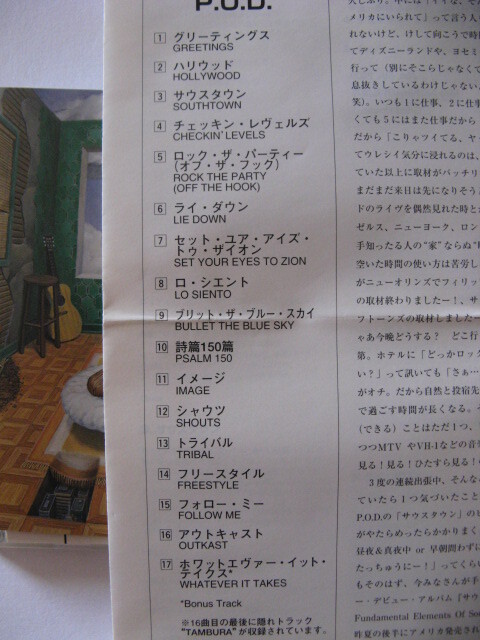 P.O.D.
1 グリーティングス
GREETINGS
2 ハリウッド
HOLLYWOOD
3 サウスタウン
SOUTHTOWN
4 チェッキン・レヴェルズ
CHECKIN' LEVELS
5 ロック・ザ・パーティー
(オフ・ザ・フック)
ROCK THE PARTY
(OFF THE HOOK)
6 ライ・ダウン
LIE DOWN
7 セット・ユア・アイズ・
トゥ・ザイオン
SET YOUR EYES TO ZION
8 ロ・シエント
LO SIENTO
9 ブリット・ザ・ブルー・スカイ
BULLET THE BLUE SKY
10 詩篇150篇
PSALM 150
11 イメージ
IMAGE
12 シャウツ
SHOUTS
13 トライバル
TRIBAL
14 フリースタイル
FREESTYLE
15 フォロー・ミー
FOLLOW ME
16 アウトキャスト
OUTKAST
17 ホワットエヴァー・イット・
テイクス*
WHATEVER IT TAKES
*Bonus Track
※16曲目の最後に隠れトラック
"TAMBURA"が収録されています。
メリカにいられて」って言う人も
れないけど、けして向こうで時間
てディズニーランドや、ヨセミ
行って(別にそこらじゃなくて
息抜きしているわけじゃない。
笑)。いつも1に仕事、2に仕事
くても5にはまた仕事だから
だから「こりゃツイてる、ヤッ
てウレシイ気分に浸れるのは、
ていた以上に取材がバッチリ
まだまだ来日は先になりそうな
ドのライヴを偶然見れた時と
ゼルス、ニューヨーク、ロン
手知ったる人の"家"ならぬ"町
空いた時間の使い方は苦労し
がニューオリンズでフィリッ
の取材終わりましたー!、サ
フトーンズの取材しましたー
ゃあ今晩どうする? どこ行
第。ホテルに「どっかロック
い?」って訊いても「さぁ…
がオチ。だから自然と投宿先
で過ごす時間が長くなる。そ
(できる)ことはただ1つ、
つつMTV やVH-1などの音楽
見る!見る!ひたすら見る!
3度の連続出張中、そんな
ていたら1つ気づいたこと
P.O.D.の「サウスタウン」のビ
がやたらめったらかかりまく
昼夜&真夜中 or 早朝問わずに
たっちゅうにー!」ってくらい
もそのはず、今みなさんが手
ー・デビュー・アルバム『サウ
Fundamental Elements Of Sou
昨夏の後半にアメリカ発売され